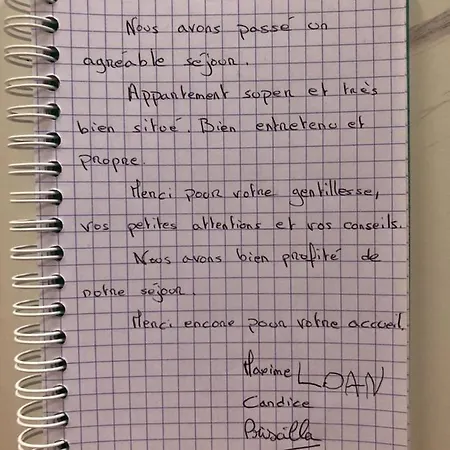 Nous avons passé un
agréable séjour.
Appartement super et très
bien situé. Bien entretenu et
propre.
Merci pour votre gentillesse,
vos petites attentions et vos conseils.
Nous avons bien profité de
notre séjour.
Merci encore pour votre accueil.
Maxime LOAN
Candice
Priscilla